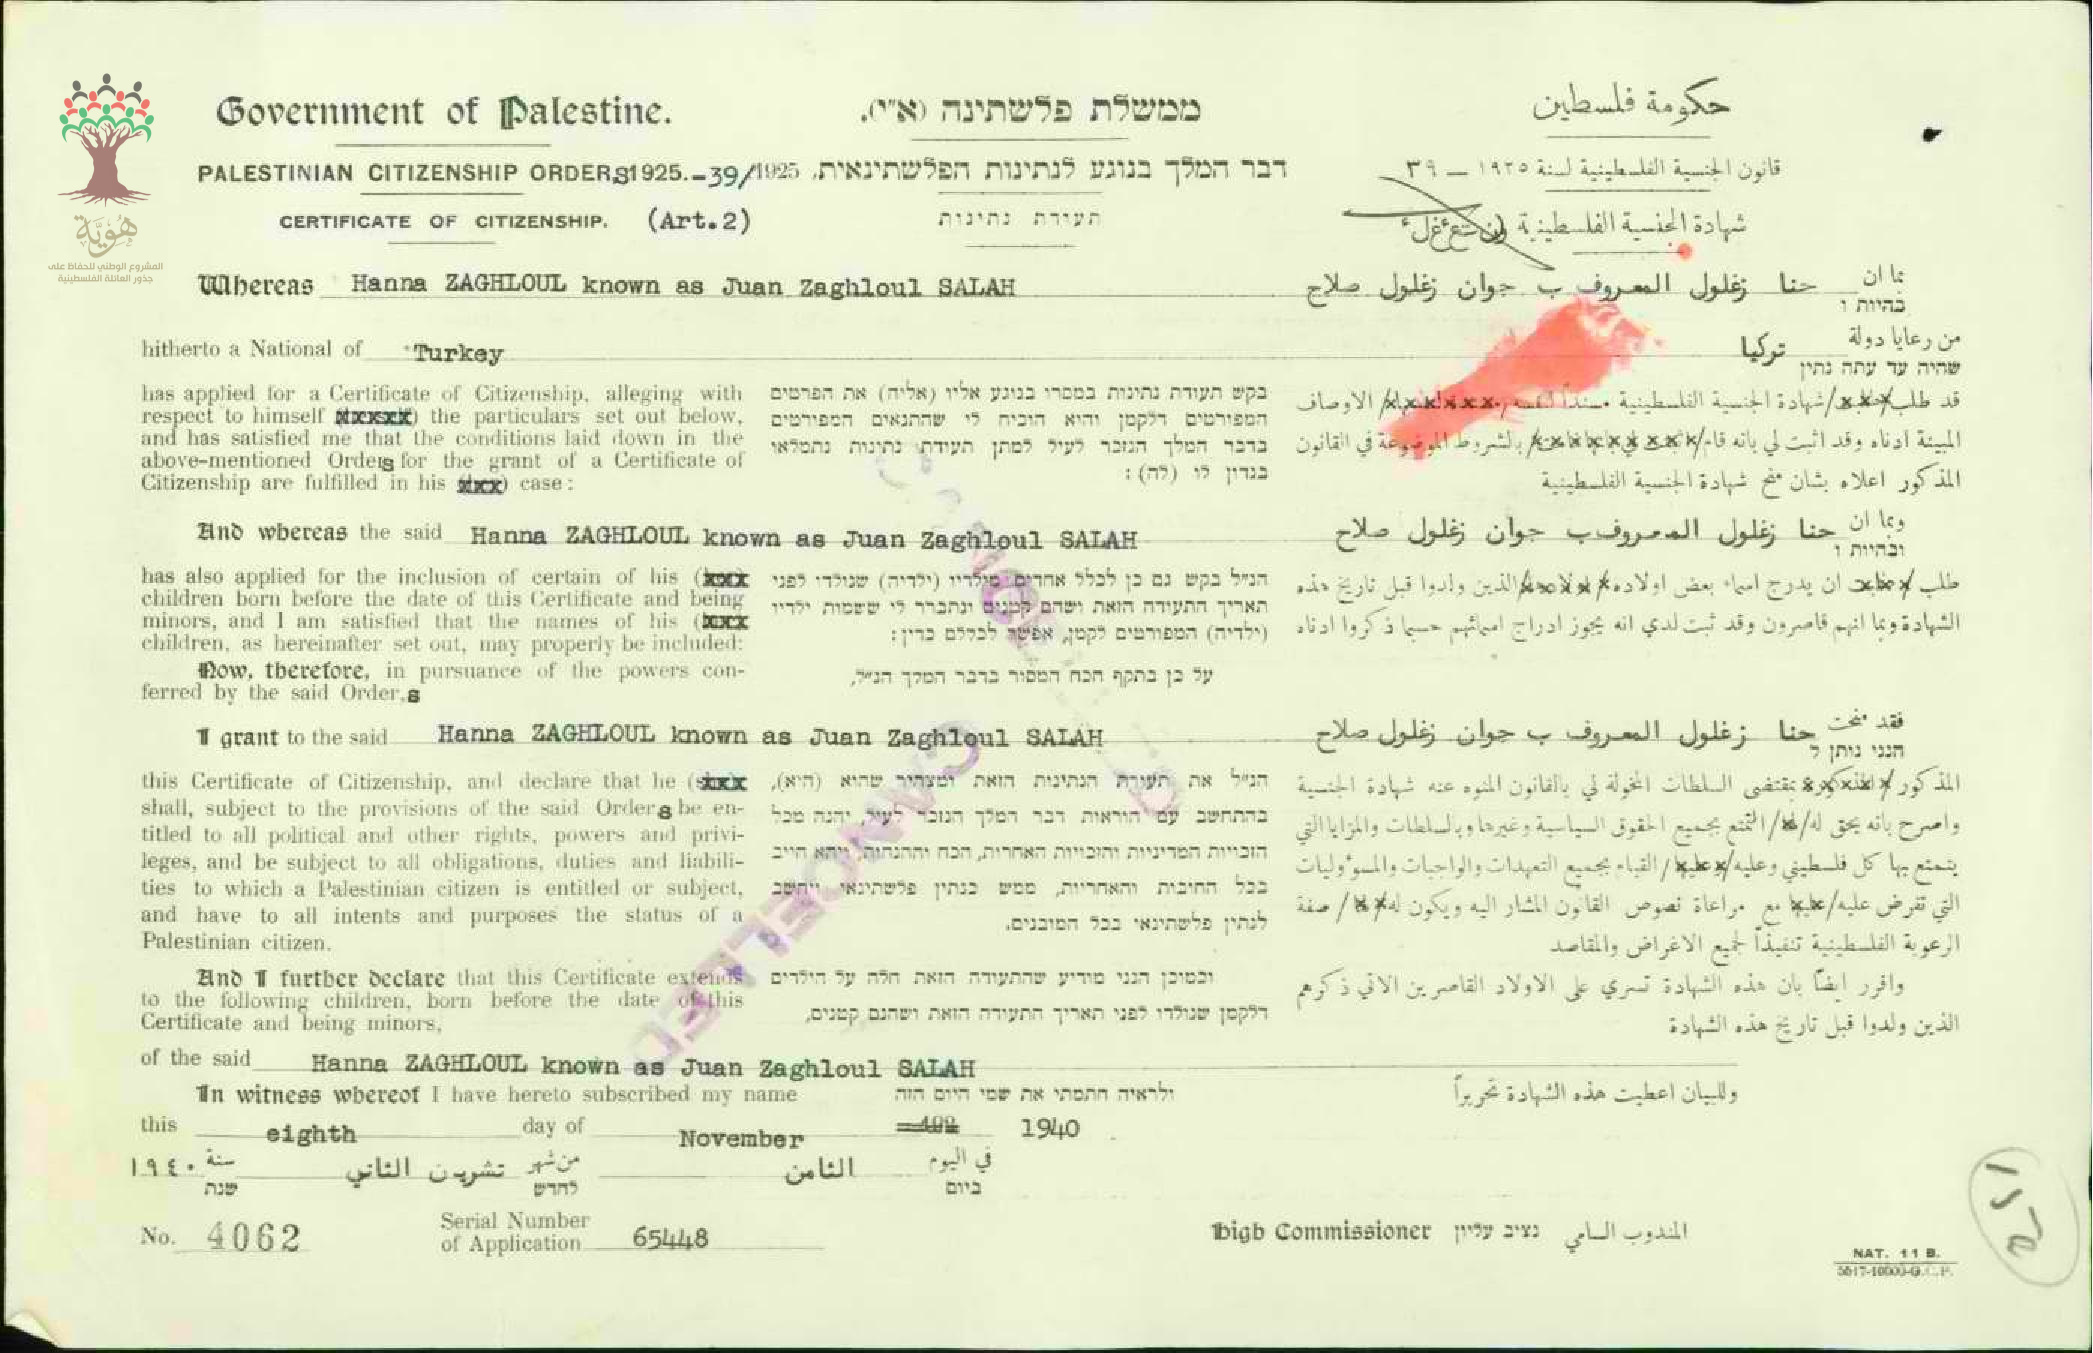 هُوِيَّة
المشروع الوطني للحفاظ على
جذور العائلة الفلسطينية
Government of Palestine.
ממשלת פלשתינה (א״י).
حكومة فلسطين
PALESTINIAN CITIZENSHIP ORDERS 1925.-39/1925
דבר המלך בנוגע לנתינות הפלשתינאית,
قانون الجنسية الفلسطينية لسنة ١٩٢٥ — ٣٩
CERTIFICATE OF CITIZENSHIP. (Art.2)
תעודת נתינות
شهادة الجنسية الفلسطينية
Whereas Hanna ZAGHLOUL known as Juan Zaghloul SALAH
بما ان حنا زغلول المعروف ب جوان زغلول صلاح
בהיות ו
hitherto a National of Turkey
من رعايا دولة تركيا
שהיה עד עתה נתין
has applied for a Certificate of Citizenship, alleging with
respect to himself the particulars set out below,
and has satisfied me that the conditions laid down in the
above-mentioned Orders for the grant of a Certificate of
Citizenship are fulfilled in his case:
בקש תעודת נתינות במסרו בנוגע אליו (אליה) את הפרטים
המפורטים דלקמן והוא הוכיח לי שהתנאים המפורטים
בדבר המלך הנזכר לעיל למתן תעודת נתינות נתמלאו
בנדון לו (לה):
قد طلب شهادة الجنسية الفلسطينية الاوصاف
المبينة ادناه وقد اثبت لي بانه قام بالشروط الموضوعة في القانون
المذكور اعلاه بشان منح شهادة الجنسية الفلسطينية
And whereas the said Hanna ZAGHLOUL known as Juan Zaghloul SALAH
وبما ان حنا زغلول المعروف ب جوان زغلول صلاح
ובהיות ו
has also applied for the inclusion of certain of his
children born before the date of this Certificate and being
minors, and I am satisfied that the names of his
children, as hereinafter set out, may properly be included:
Now, therefore, in pursuance of the powers con-
ferred by the said Order,s
הנ״ל בקש גם כן לכלל אחדים מילדיו (ילדיה) שנולדו לפני
תאריך התעודה הזאת ושהם קטנים ונתברר לי ששמות ילדיו
(ילדיה) המפורטים לקמן, אפשר לכללם כדין:
על כן בתקף הכח המסור בדבר המלך הנ״ל,
طلب ان يدرج اسماء بعض اولاده الذين ولدوا قبل تاريخ هذه
الشهادة وبما انهم قاصرون وقد ثبت لدي انه يجوز ادراج اسمائهم حسبما ذكروا ادناه
I grant to the said Hanna ZAGHLOUL known as Juan Zaghloul SALAH
فقد منحت حنا زغلول المعروف ب جوان زغلول صلاح
הנני נותן ל
this Certificate of Citizenship, and declare that he
shall, subject to the provisions of the said Orders be en-
titled to all political and other rights, powers and privi-
leges, and be subject to all obligations, duties and liabili-
ties to which a Palestinian citizen is entitled or subject,
and have to all intents and purposes the status of a
Palestinian citizen.
הנ״ל את תעודת הנתינות הזאת ומצהיר שהוא (היא),
בהתחשב עם הוראות דבר המלך הנזכר לעיל, יהנה מכל
הזכויות המדיניות והזכויות האחרות, הכח וההנחות, ויהא חייב
בכל החובות והאחריות, ממש כנתין פלשתינאי, וייחשב
לנתין פלשתינאי בכל המובנים.
المذكور بمقتضى السلطات المخولة لي بالقانون المنوه عنه شهادة الجنسية
واصرح بانه يحق له التمتع بجميع الحقوق السياسية وغيرها وبالسلطات والمزايا التي
يتمتع بها كل فلسطيني وعليه القيام بجميع التعهدات والواجبات والمسؤوليات
التي تفرض عليه مع مراعاة نصوص القانون المشار اليه ويكون له صفة
الرعوية الفلسطينية تنفيذاً لجميع الاغراض والمقاصد
And I further declare that this Certificate extends
to the following children, born before the date of this
Certificate and being minors,
וכמוכן הנני מודיע שהתעודה הזאת חלה על הילדים
דלקמן שנולדו לפני תאריך התעודה הזאת ושהנם קטנים,
واقرر ايضاً بان هذه الشهادة تسري على الاولاد القاصرين الاتي ذكرهم
الذين ولدوا قبل تاريخ هذه الشهادة
CANCELLED
of the said Hanna ZAGHLOUL known as Juan Zaghloul SALAH
In witness whereof I have hereto subscribed my name
ולראיה חתמתי את שמי היום הזה
وللبيان اعطيت هذه الشهادة تحريراً
this eighth day of November 1940
في اليوم الثامن من شهر تشرين الثاني سنة ١٩٤٠
ביום לחדש שנת
No. 4062
Serial Number
of Application 65448
High Commissioner נציב עליון المندوب السامي
NAT. 11 B.
5517-10000-G.C.P.